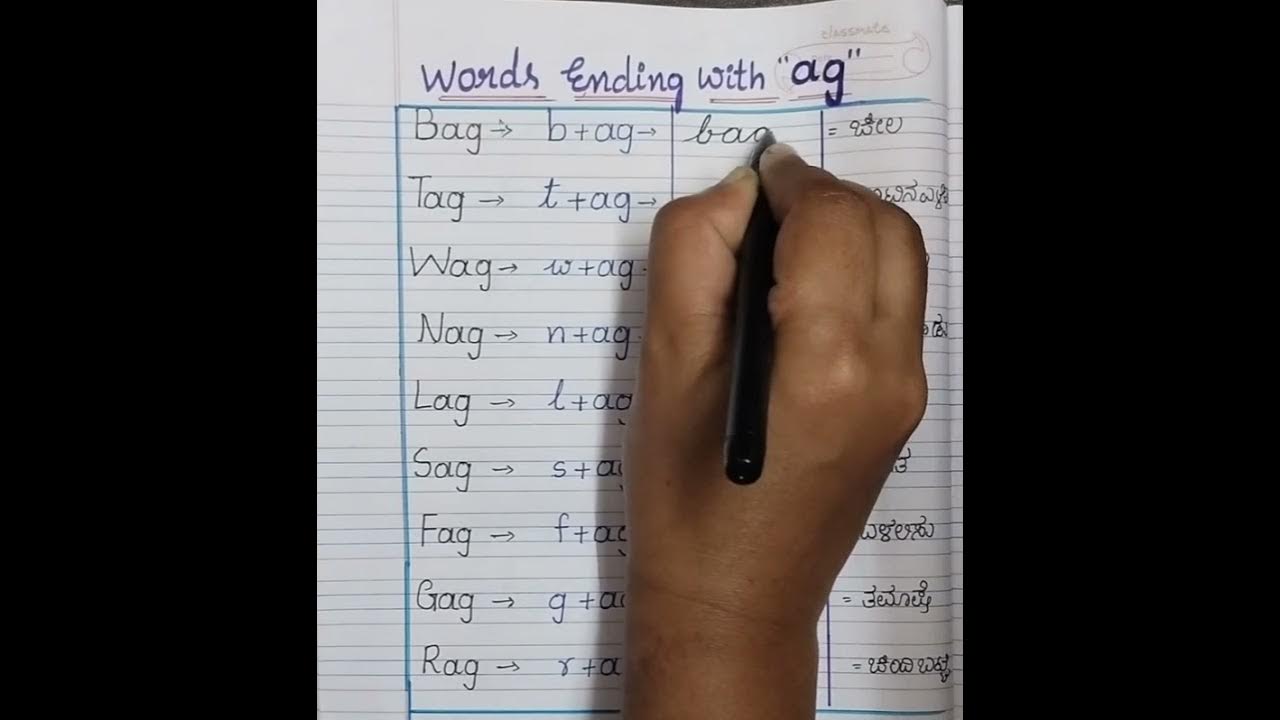 classmate
Words Ending with "ag"
Bag → b + ag → bag = ಚೀಲ
Tag → t + ag →
Wag → w + ag
Nag → n + ag
Lag → l + ag
Sag → s + ag
Fag → f + ag
Gag → g + a = ತಮಾಷೆ
Rag → r + a = ಚಿಂದಿ ಬಟ್ಟೆ